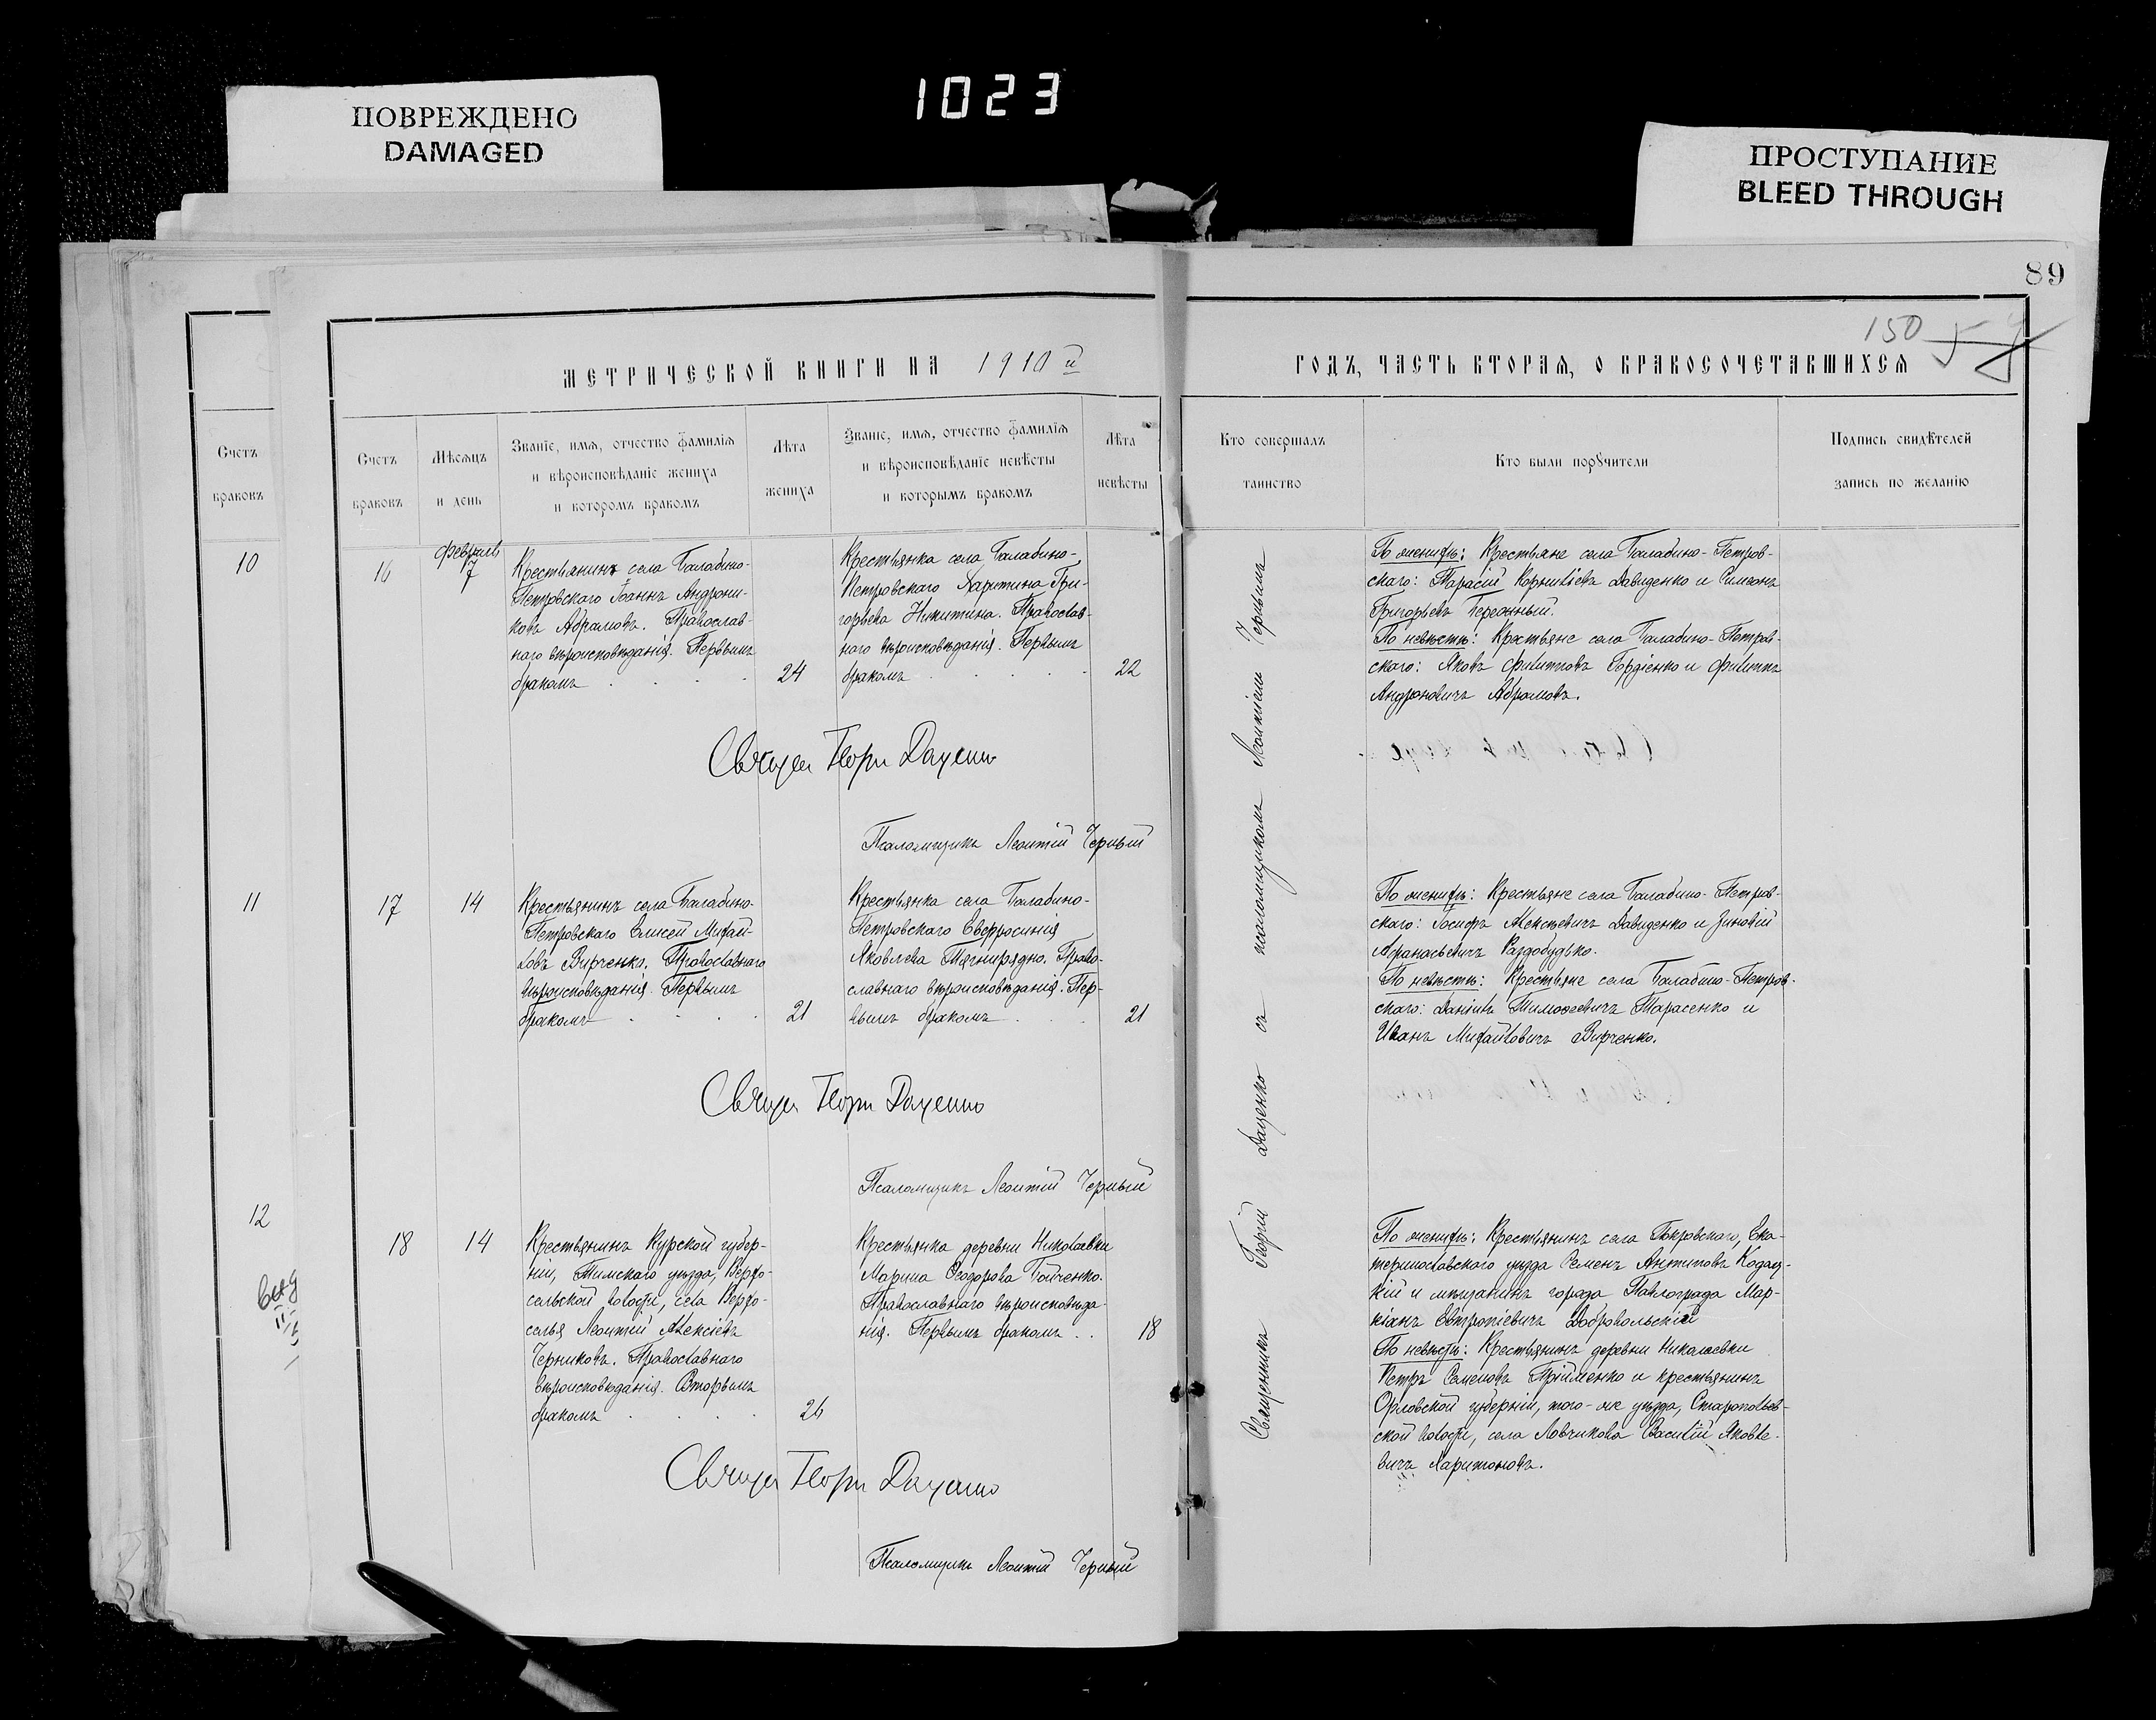 1023
ПОВРЕЖДЕНО
DAMAGED
ПРОСТУПАНИЕ
BLEED THROUGH
89
150
МЕТРИЧЕСКОЙ КНИГИ НА 1910 й
ГОДЪ, ЧАСТЬ ВТОРАЯ, О БРАКОСОЧЕТАВШИХСЯ
Счетъ
браковъ
10
11
12
Счетъ
браковъ
Мѣсяцъ
и день
Званіе, имя, отчество фамилія
и вѣроисповѣданіе жениха
и которомъ бракомъ
Лѣта
жениха
Званіе, имя, отчество фамилія
и вѣроисповѣданіе невѣсты
и которымъ бракомъ
Лѣта
невѣсты
Кто совершалъ
таинство
Кто были порꙋчители
Подпись свидѣтелей
запись по желанію
16
февраль
7
Крестьянинъ села Балабино-
Петровскаго Іоаннъ Андрони-
ковъ Абрамовъ. Православ-
наго вѣроисповѣданія. Первымъ
бракомъ
24
Крестьянка села Балабино-
Петровскаго Харитина Гри-
горьева Никитина. Православ-
наго вѣроисповѣданія. Первымъ
бракомъ
22
По женихѣ: Крестьяне села Балабино-Петров-
скаго: Тарасій Корниліевъ Давиденко и Симеонъ
Григорьевъ
По невѣстѣ: Крестьяне села Балабино-Петров-
скаго: Яковъ Филипповъ Гордіенко и Филиппъ
Андроновичъ Абрамовъ.
Георг Даценко
Псаломщикъ Леонтій Черный
17
14
Крестьянинъ села Балабино-
Петровскаго Елисей Михаи-
ловъ Вирченко. Православнаго
вѣроисповѣданія. Первымъ
бракомъ
21
Крестьянка села Балабино-
Петровскаго Евфросинія
Яковлева Тягнирядно. Право-
славнаго вѣроисповѣданія. Пер-
вымъ бракомъ
21
По женихѣ: Крестьяне села Балабино-Петров-
скаго: Іосифъ Алексѣевичъ Давиденко и Зиновій
Афанасьевичъ Раздобудько.
По невѣстѣ: Крестьяне села Балабино-Петров-
скаго: Даніилъ Тимофеевичъ Тарасенко и
Иванъ Михайловичъ Вирченко.
Георг Даценко
Псаломщикъ Леонтій Черный
18
14
Крестьянинъ Курской губер-
ніи, Тимскаго уѣзда, Верхо-
сельской волости, села Верхо-
селья Леонтій Алексіевъ
Черниковъ. Православнаго
вѣроисповѣданія. Вторымъ
бракомъ
26
Крестьянка деревни Николаевки
Марина Ѳеодорова Бойченко.
Православнаго вѣроисповѣда-
нія. Первымъ бракомъ
18
По женихѣ: Крестьянинъ села Покровскаго, Ека-
теринославскаго уѣзда Семенъ Антиповъ Кодац-
кій и мѣщанинъ города Павлограда Мар-
кіанъ Евтропіевичъ Добровольскій
По невѣстѣ: Крестьянинъ деревни Николаевки
Петръ Семеновъ Прійменко и крестьянинъ
Орловской губерніи, того-же уѣзда,
ской волости, села Ловчикова Василій Яковле-
вичъ Харитоновъ.
Георг Даценко
Псаломщикъ Леонтій Черный
Священникъ Георгій Даценко съ псаломщикомъ Леонтіемъ Чернымъ